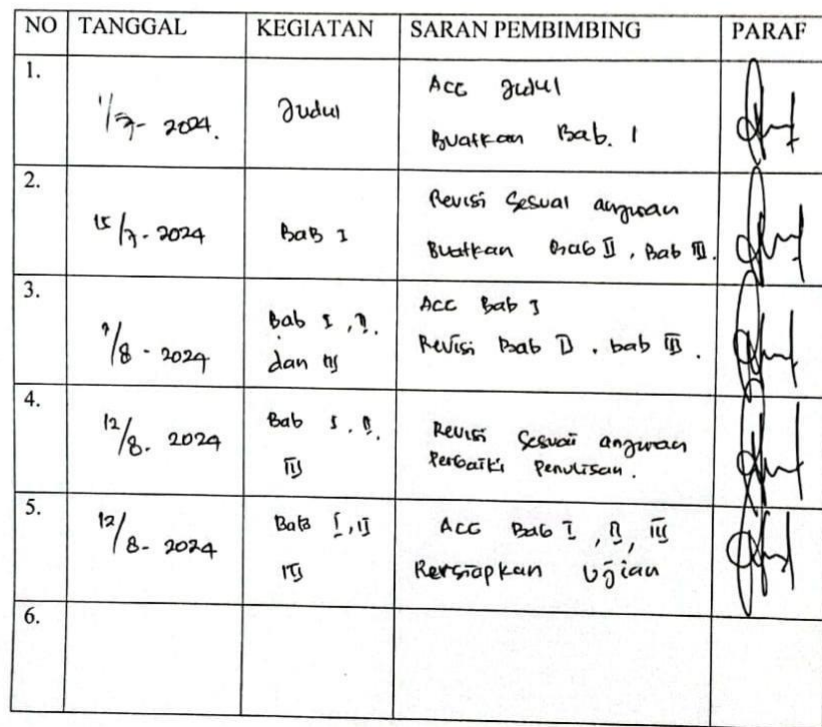 NO TANGGAL KEGIATAN SARAN PEMBIMBING PARAF
1.
1/7- 2024. Judul Acc Judul
Buatkan Bab. I
2.
15/7. 2024 Bab I Revisi Sesuai anjuran
Buatkan Bab II, Bab III.
3.
/8 - 2024 Bab I, II. Acc Bab I
dan III Revisi Bab II, bab III.
4.
12/8. 2024 Bab I, II. Revisi Sesuai anjuran
III Perbaiki Penulisan.
5.
12/8- 2024 Bab I, II Acc Bab I, II, III
III Persiapkan Ujian
6.